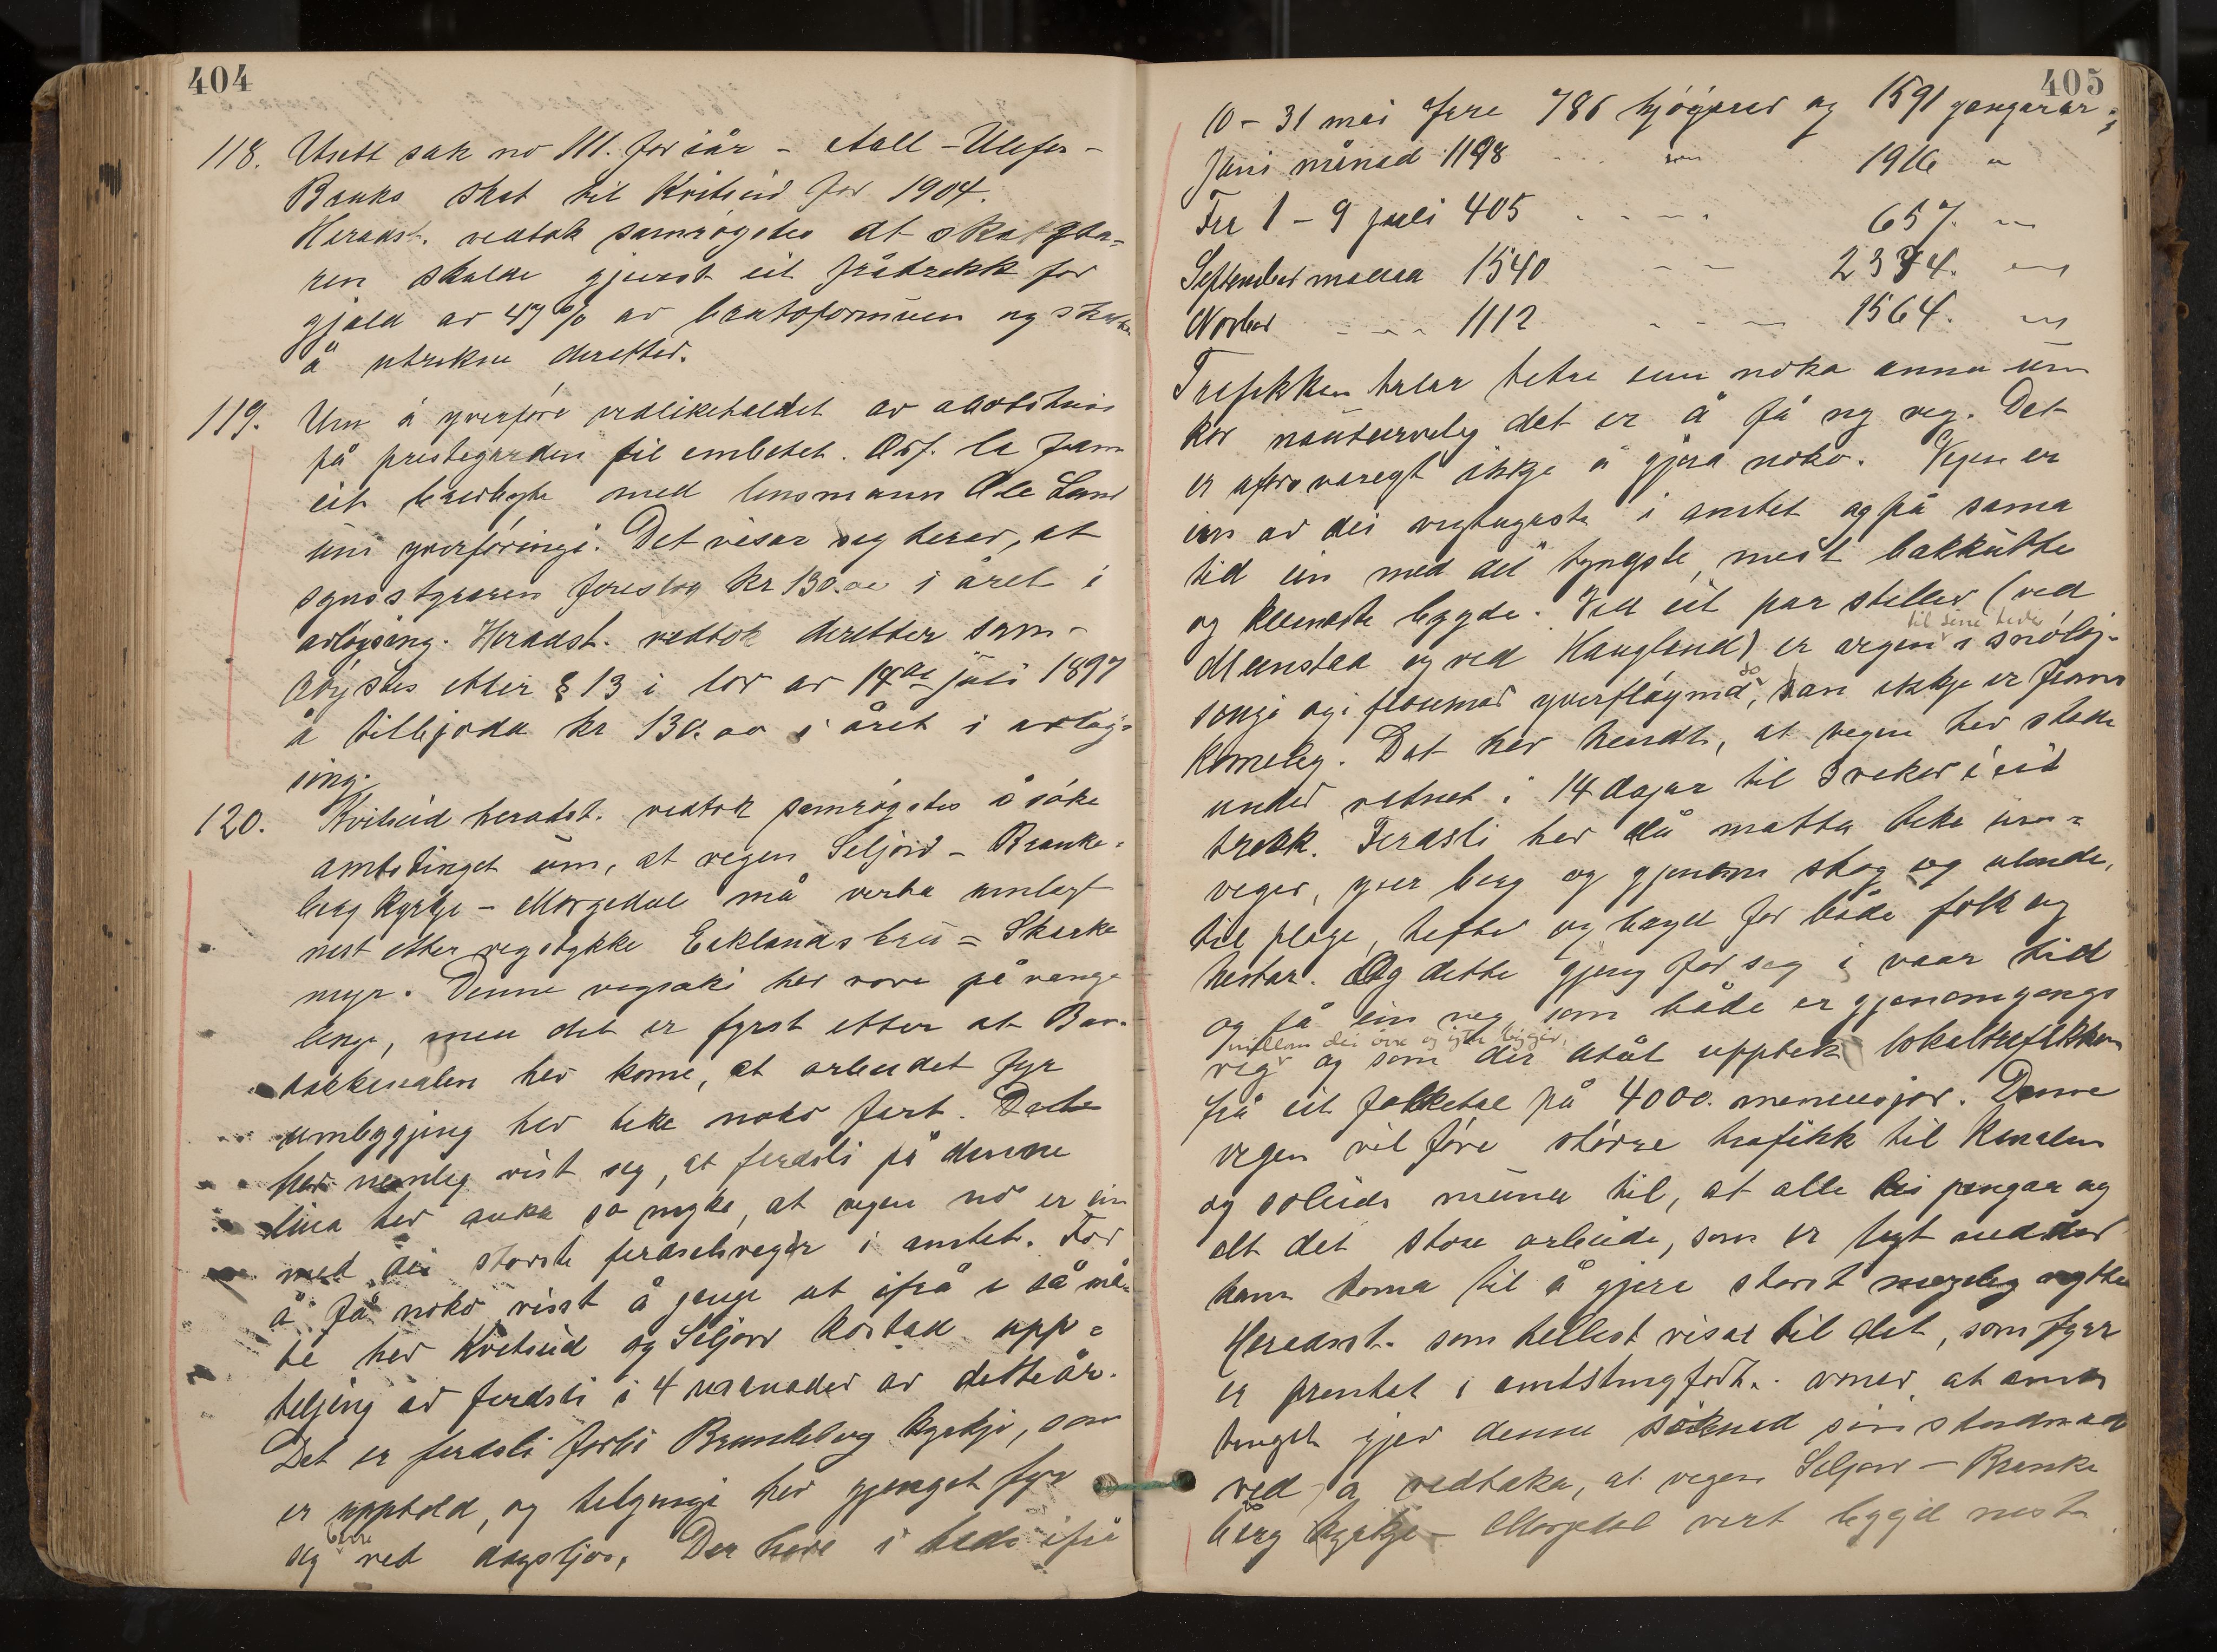 404
118. Utsett sak no 111. for iår - Aall - Ulefos -
Bruks skat til Kvitseid for 1904.
Heradst. vedtok samrøystes at skatyta=
ren skulde gjerast eit frådrekk for
gjeld av 47 % av bruttoformuen og skatten
å utrekne deretter.
119. Um å yverføra vedlikehaldet av
på prestegarden til embetet. Osf. la fram
eit med lensmann Ole Lund
um yverføringi. Det visar seg herav, at
synsstyraren foreslog kr 130.00 i året i
avløysing. Heradst. vedtok deretter sam-
røystes etter § 13 i lov av 14de juli 1897
å tilbjoda kr 130.00 i året i avløy=
sing.
120. Kvitseid heradst. vedtok samrøystes å søke
amtstinget um, at vegen Seljord - Brunke=
berg kyrkje - Morgedal må verta umlagt
nest etter vegstykke Eiklandsbru = Skarke
myr. Denne vegsaki hev vore på vange
lenge, men det er fyrst etter at Ban-
dakkanalen hev kome, at arbeidet fyr
umbyggjing hev teke noko fart. Dette
hev nemleg vist seg, at ferdsli på denne
lina hev auka so myke, at vegen no er ein
med dei største ferdselsvegir i amtet. For
å få noko visst å gange ut ifrå i så må-
te hev Kvitseid og Seljord kostad upp=
teljing av ferdsli i 4 maanader av dette år.
Det er ferdsli forbi Brunkeberg kyrkje, som
er upptald, og teljingi hev gjenget fyr
seg berre ved dagsljos. Der hev i tidi ifrå
405
10 - 31 mai fare 786 kjøyrarar og 1591 gangarar;
Juni månad 1198 - - - 1916 "
Frå 1 - 9 juli 405 - - - 657. "
September maanad 1540 - - 2374. "
Novbr - - - 1112 - - - 1564. "
Trafikken talar betre enn noka anna um
kor nauturveleg det er å få ny veg. Det
er uforsvarlegt ikkje å gjera noko. Vegen er
ein av dei vigtugaste i amtet og på sama
tid ein med dei tyngste, mest bakkutte
og klenaste bygde. Ved eit par stellar (ved
Munstad og ved Haugland) er vegen til sine tider i snøløy-
singi og i flaumar yverfløymd, so han ikkje er fram
komeleg. Det hev hendt, at vegen hev stade
under vatnet i 14 dagar til 3 vekor i eit
trekk. Ferdsli hev då matta teke um=
veger, yver berg og gjenom skog og ulende,
til plage, hefte og bryd for både folk og
hestar. Og dette gjeng for seg i vaar tid
og på ein veg som både er gjenomgangs
veg millom dei øvre og ytre bygder, og som der attåt upptek lokaltrafikken
frå eit folketal på 4000. menneskjor. Denne
vegen vil føre større trafikk til kanalen
og soleids muna til, at alle dei pengar og
alt det store arbeide, som er lagt ned der
kann koma til å gjere størst mogeleg nytte
Heradsst. som hellest visar til det, som fyrr
er prentet i amtstingforh. vonar, at amts
tinget gjev denne søknad sin studnad
ved å vedtaka, at vegen Seljord - Brunke
berg kyrkje - Morgedal vert bygd nest